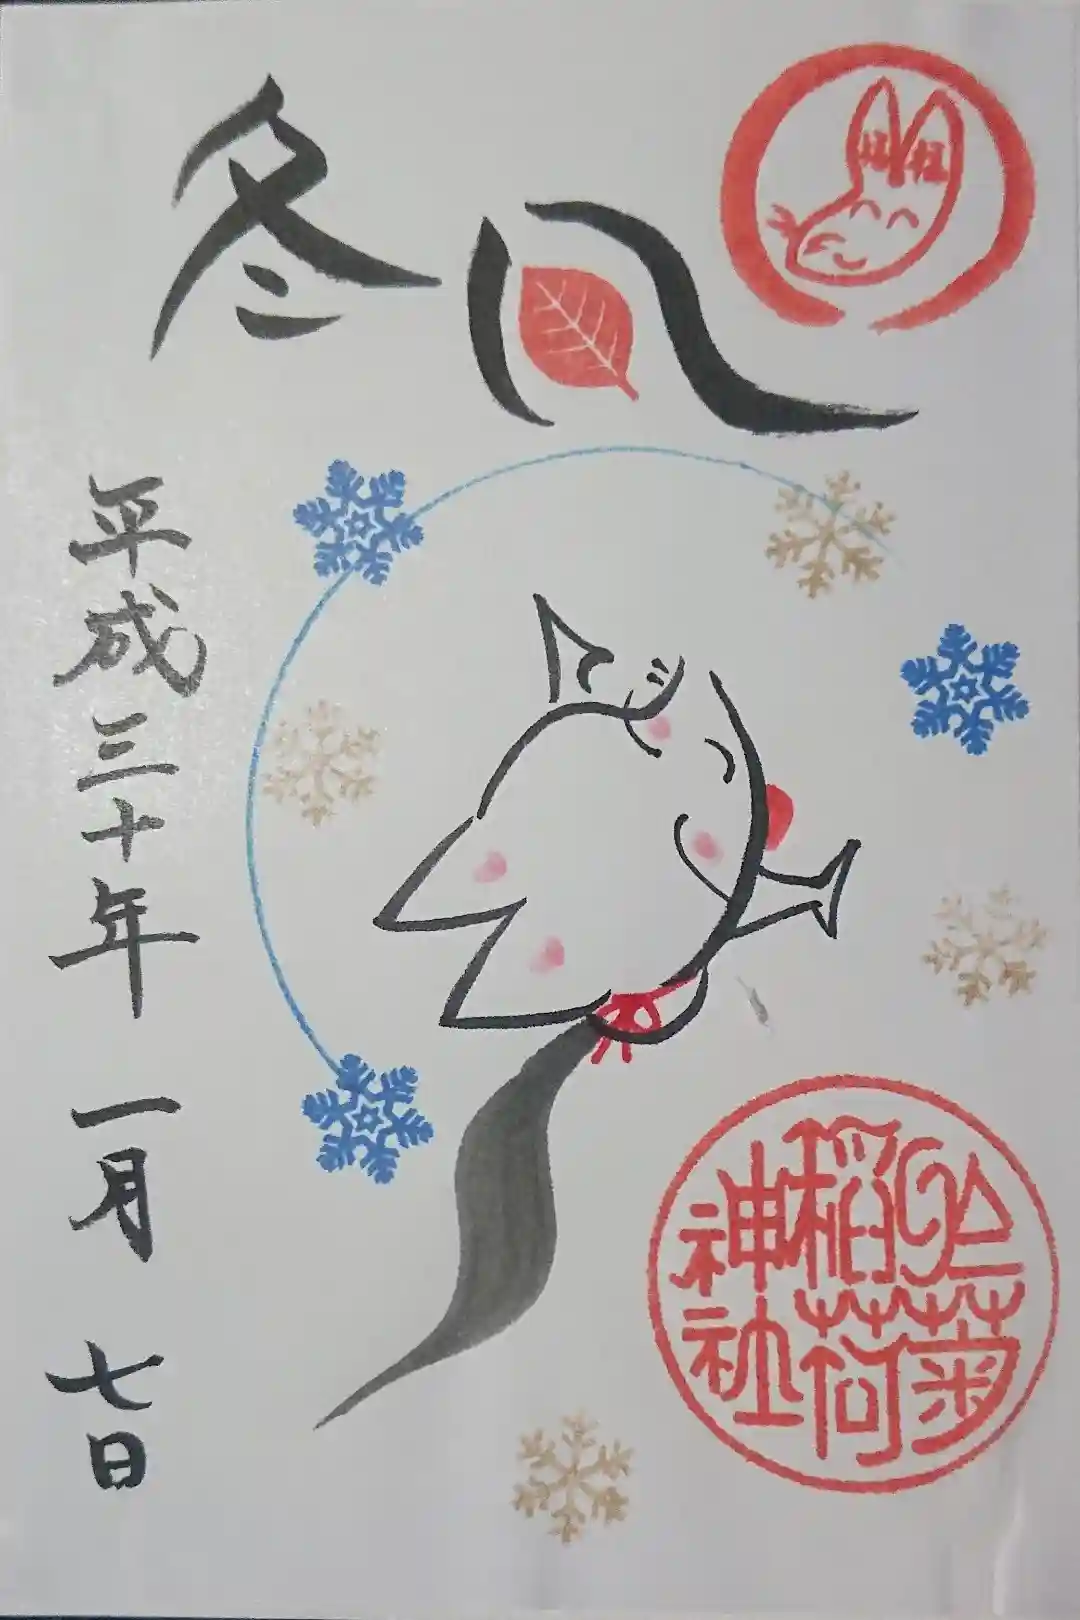 冬
平成三十年一月七日
於菊
稲荷
神社